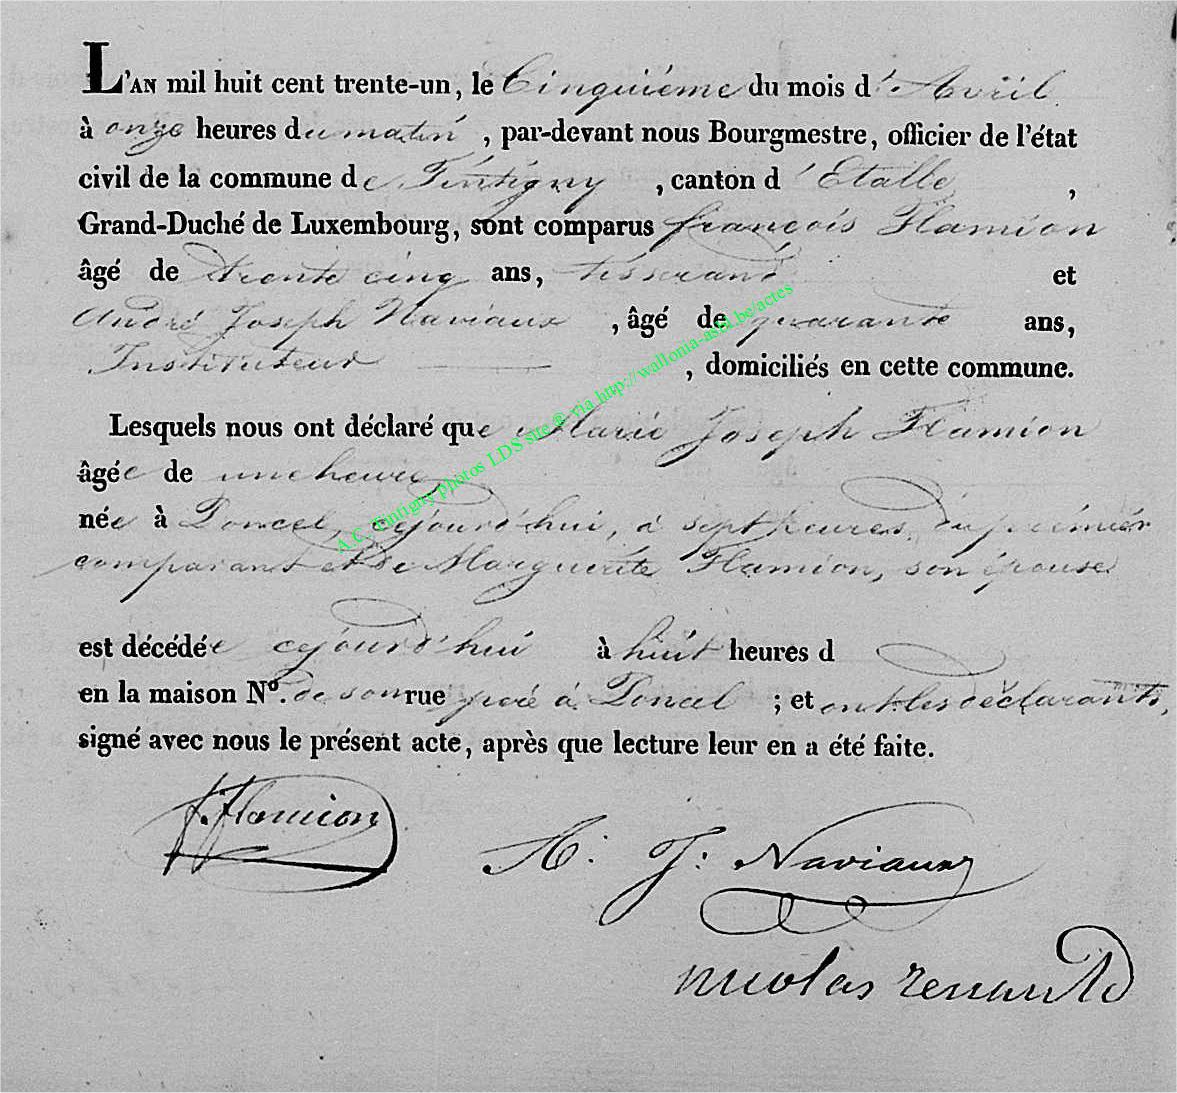 L'AN mil huit cent trente-un, le Cinquiéme du mois d'Avril
à onze heures du matin , par-devant nous Bourgmestre, officier de l'état
civil de la commune de Tintigny , canton d'Etalle ,
Grand-Duché de Luxembourg, sont comparus françois Flamion
âgé de trente cinq ans, tisserand et
André Joseph Naviaux , âgé de quarante ans,
Instituteur , domiciliés en cette commune.
Lesquels nous ont déclaré que Marie Joseph Flamion
âgée de une heure
née à Poncel, cejourd'hui, à sept heures, du premier
comparant et de Marguerite Flamion, son épouse
est décédée cejourd'hui à huit heures d
en la maison Nº. de son rue père à Poncel ; et ont les déclarants,
signé avec nous le présent acte, après que lecture leur en a été faite.
f. Flamion
A. J: Naviaux
nicolas renauld
A.C. Tintigny photos LDS site ® via http://wallonia-asbl.be/actes